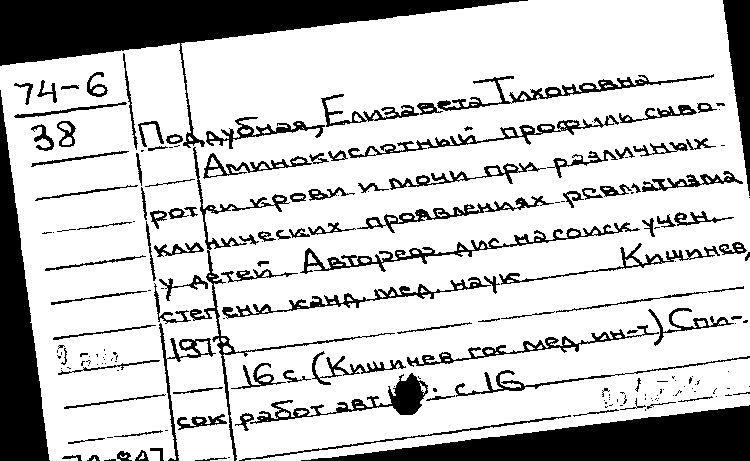 74-6
38
Поддубная, Елизавета Тихоновна
Аминокислотный профиль сыво-
ротки крови и мочи при различных
клинических проявлениях ревматизма
у детей. Автореф. дис. на соиск учен.
степени канд. мед. наук. Кишинев,
1973.
16 с. (Кишинев. гос. мед. ин-т) Спи-
сок работ авт. : с. 16.